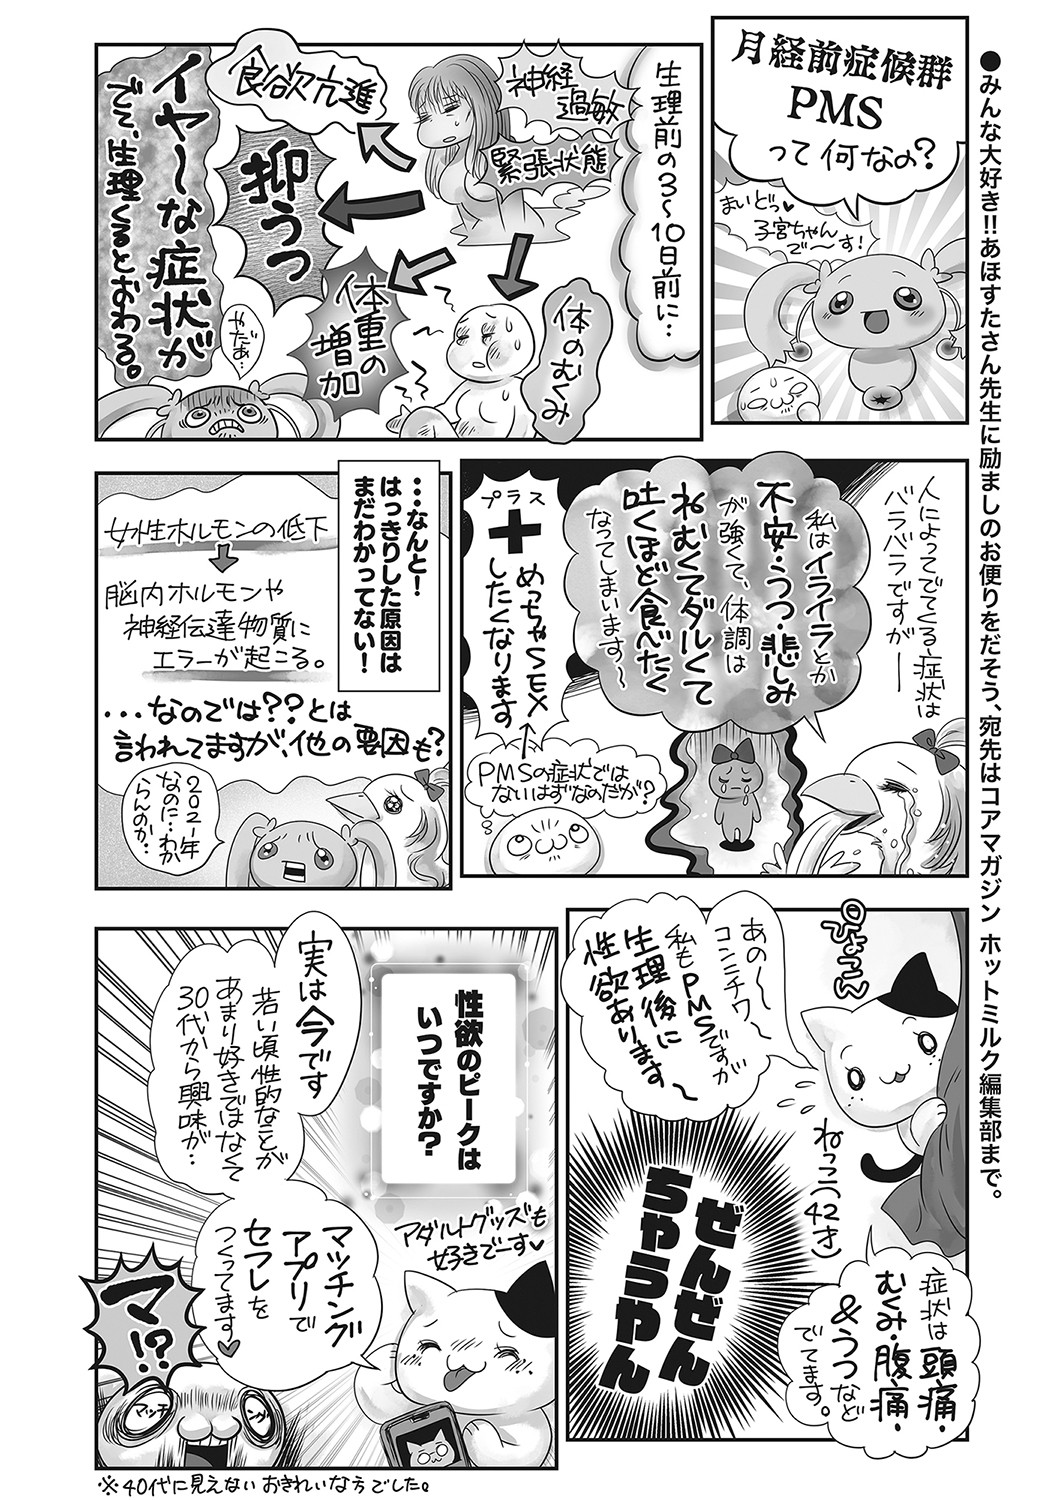 ●みんな大好き!!あほすたさん先生に励ましのお便りをだそう、宛先はコアマガジン ホットミルク編集部まで。
月経前症候群
PMS
って何なの?
まいどっ♥
子宮ちゃん
で〜す!
生理前の3〜10日前に…
神経
過敏
緊張状態
食欲亢進
抑うつ
体重の
増加
体のむくみ
イヤ〜な症状が
でて、生理くるとおわる。
やだぁ…
人によってでてくる症状は
バラバラですが──
私はイライラとか
不安・うつ・悲しみ
が強くて、体調は
ねむくてダルくて
吐くほど食べたく
なってしまいます〜
プラス
+
めっちゃSEX
したくなります
PMSの症状では
ないはずなのだが?
…なんと!
はっきりした原因は
まだわかってない!
女性ホルモンの低下
脳内ホルモンや
神経伝達物質に
エラーが起こる。
…なのでは??とは
言われてますが、他の要因も?
2021年
なのに…わか
らんのか…
ひょっこん
あの〜
コンニチワ〜
私もPMSですが
生理後に
性欲あります〜
ねっこ(42才)
ぜんぜん
ちゃうやん
症状は頭痛・
むくみ・腹痛・
&うつなど
でてます。
性欲のピークは
いつですか?
実は今です
若い頃性的なことが
あまり好きではなくて
30代から興味が…
アダルトグッズも
好きでーす♥
マッチング
アプリで
セフレを
つくってます♥
マ!?
マッチ
ング
※40代に見えないおきれいな方でした。